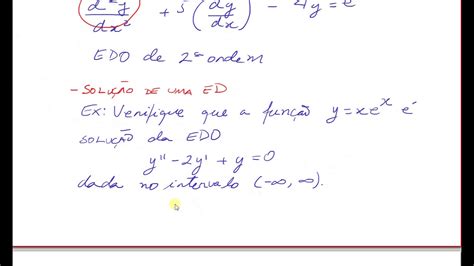 d²y/dx² + 5 (dy/dx) - 4y = e
EDO de 2ª ordem
- SOLUÇÃO DE UMA ED
Ex: Verifique que a função y = xeˣ é
SOLUÇÃO da EDO
y'' - 2y' + y = 0
dada no intervalo (-∞, ∞).